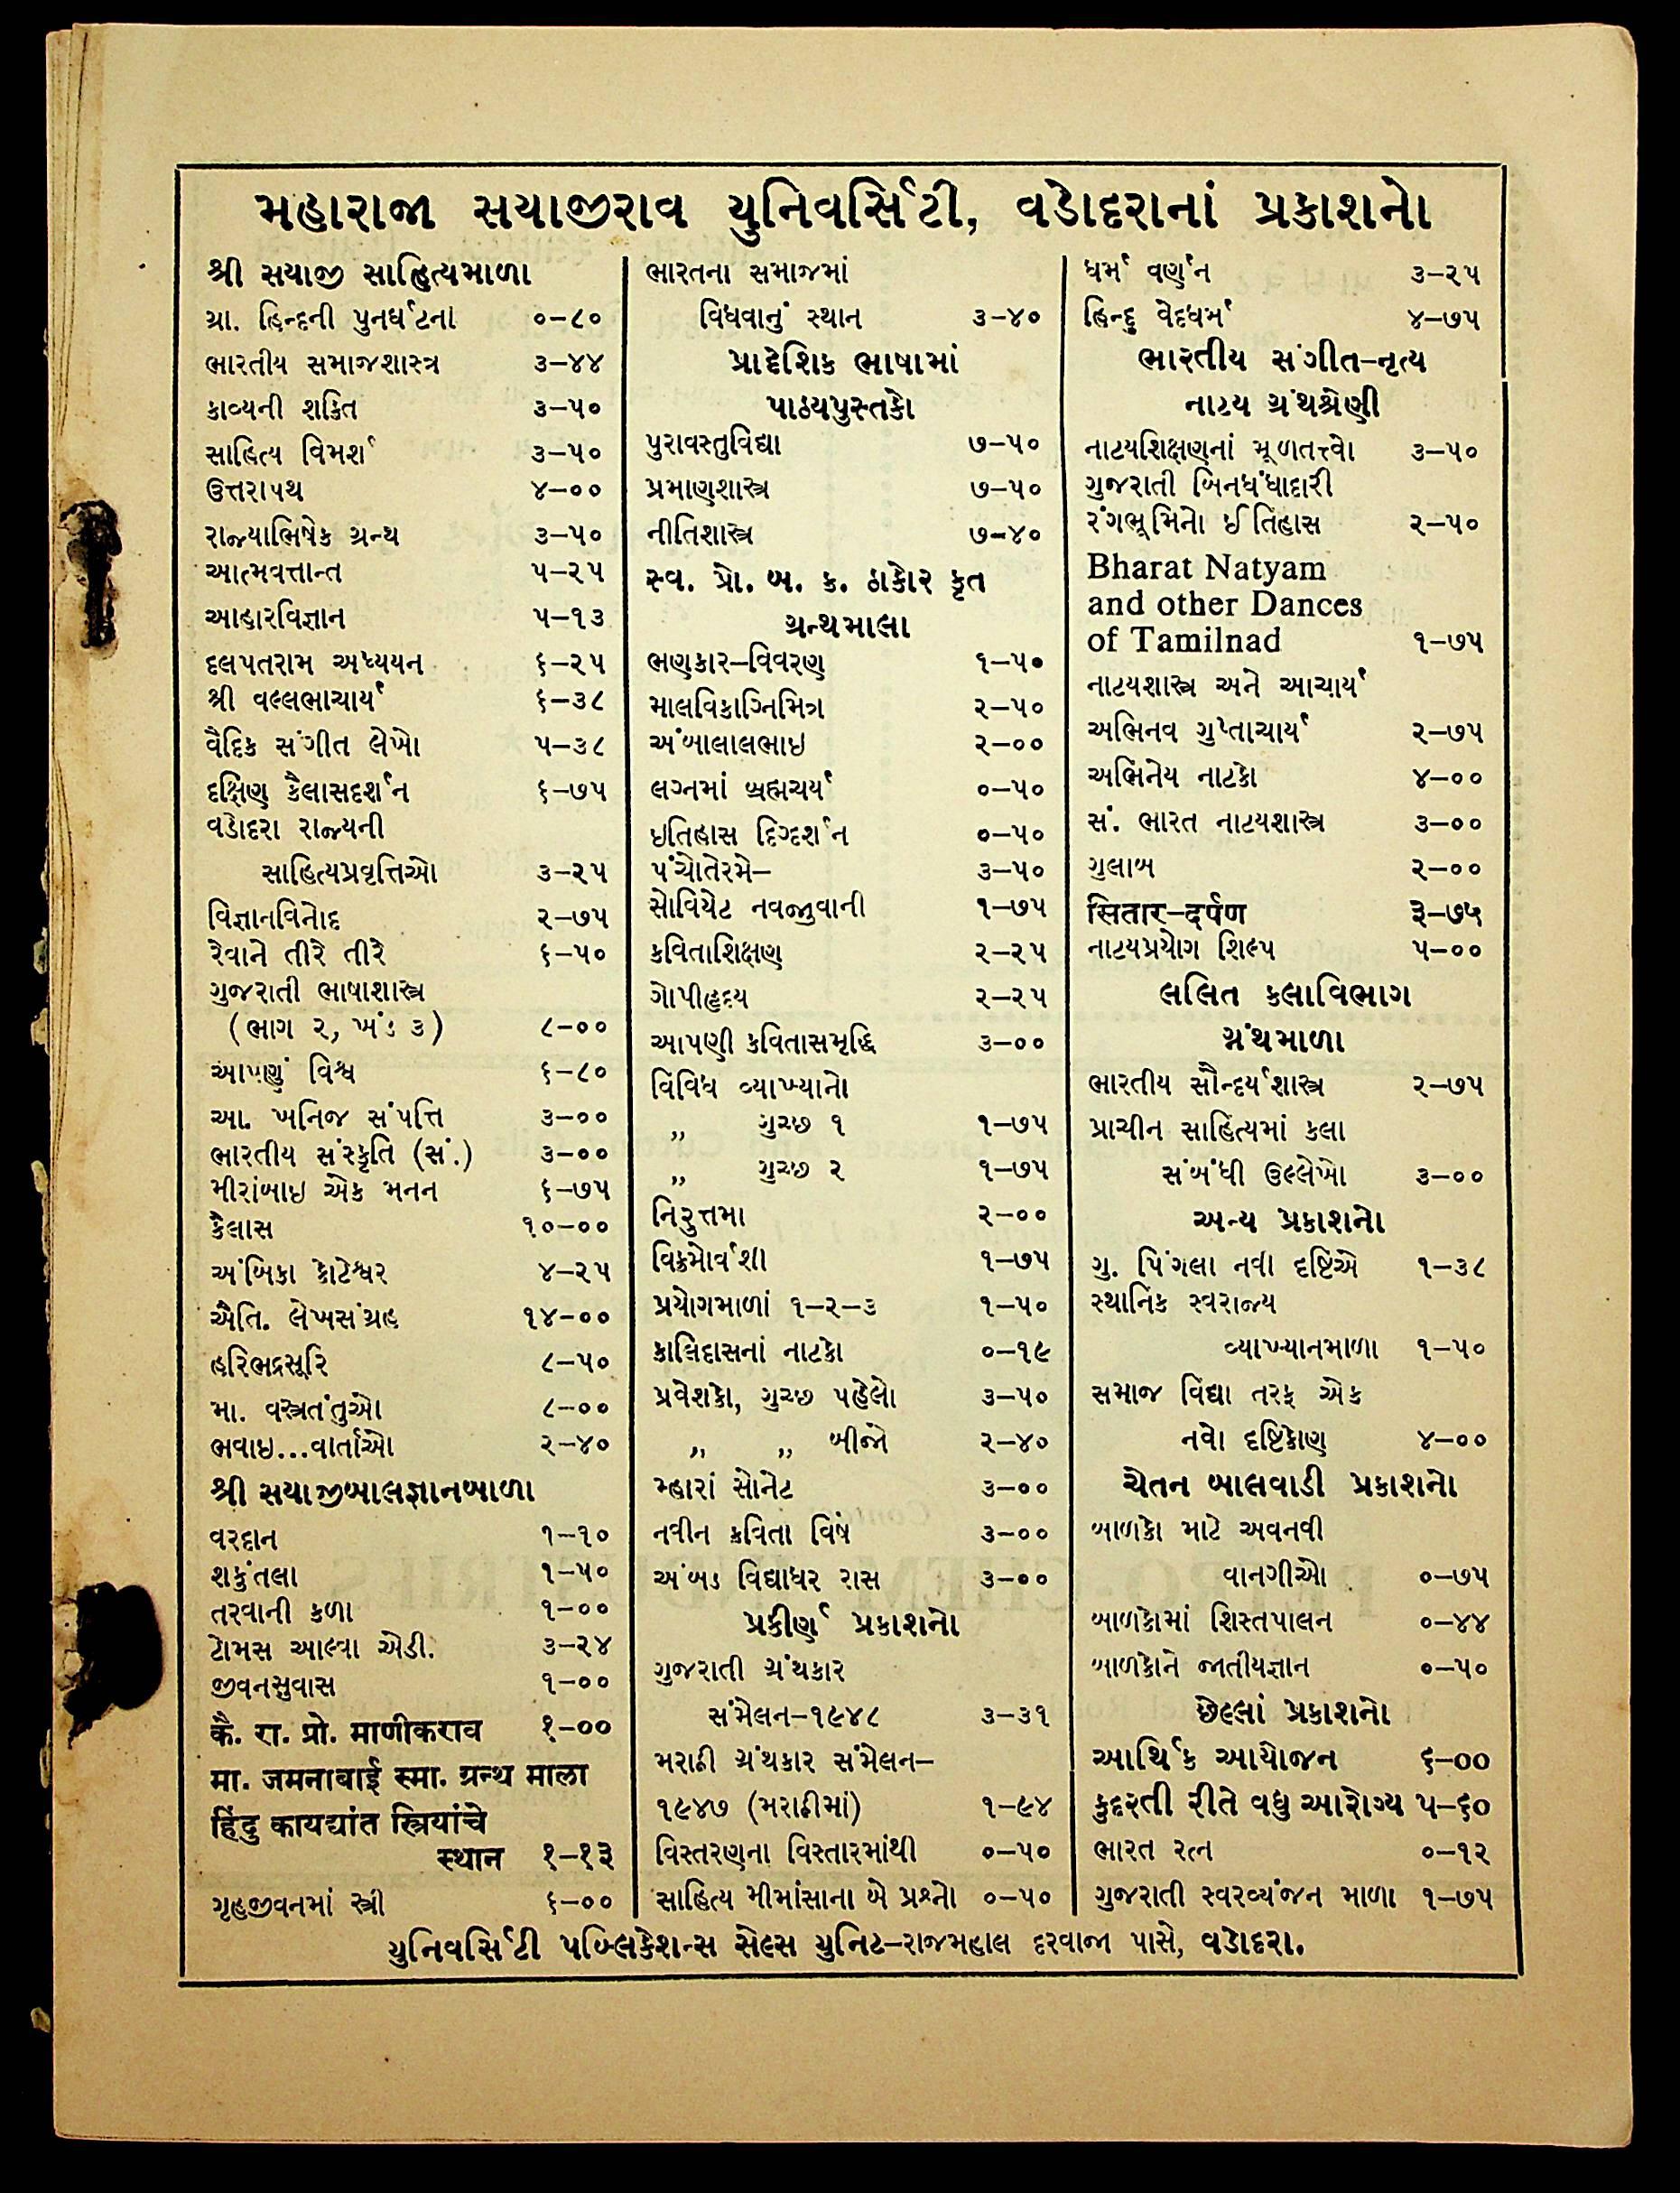 મહારાજા સયાજીરાવ યુનિવર્સિટી, વડોદરાનાં પ્રકાશનો
શ્રી સયાજી સાહિત્યમાળા
ગ્રા. હિન્દની પુનર્ઘટના ૦–૮૦
ભારતીય સમાજશાસ્ત્ર ૩–૪૪
કાવ્યની શક્તિ ૩–૫૦
સાહિત્ય વિમર્શ ૩–૫૦
ઉત્તરાપથ ૪–૦૦
રાજ્યાભિષેક ગ્રન્થ ૩–૫૦
આત્મવત્તાન્ત ૫–૨૫
આહારવિજ્ઞાન ૫–૧૩
દલપતરામ અધ્યયન ૬–૨૫
શ્રી વલ્લભાચાર્ય ૬–૩૮
વૈદિક સંગીત લેખો ૫–૩૮
દક્ષિણ કૈલાસદર્શન ૬–૭૫
વડોદરા રાજ્યની
સાહિત્યપ્રવૃત્તિઓ ૩–૨૫
વિજ્ઞાનવિનોદ ૨–૭૫
રેવાને તીરે તીરે ૬–૫૦
ગુજરાતી ભાષાશાસ્ત્ર
(ભાગ ૨, ખંડ ૩) ૮–૦૦
આપણું વિશ્વ ૬–૮૦
આ. ખનિજ સંપત્તિ ૩–૦૦
ભારતીય સંસ્કૃતિ (સં.) ૩–૦૦
મીરાંબાઇ એક મનન ૬–૭૫
કૈલાસ ૧૦–૦૦
અંબિકા કોટેશ્વર ૪–૨૫
ઐતિ. લેખસંગ્રહ ૧૪–૦૦
હરિભદ્રસૂરિ ૮–૫૦
મા. વસ્ત્રતંતુઓ ૮–૦૦
ભવાઇ...વાર્તાઓ ૨–૪૦
શ્રી સયાજીબાલજ્ઞાનમાળા
વરદાન ૧–૧૦
શકુંતલા ૧–૫૦
તરવાની કળા ૧–૦૦
ટોમસ આલ્વા એડી. ૩–૨૪
જીવનસુવાસ ૧–૦૦
कै. रा. प्रो. माणीकराव १–००
मा. जमनाबाई स्मा. ग्रन्थ माला
हिंदु कायद्यांत स्त्रियांचे
स्थान १–१३
ગૃહજીવનમાં સ્ત્રી ૬–૦૦
ભારતના સમાજમાં
વિધવાનું સ્થાન ૩–૪૦
પ્રાદેશિક ભાષામાં
પાઠયપુસ્તકો
પુરાવસ્તુવિદ્યા ૭–૫૦
પ્રમાણશાસ્ત્ર ૭–૫૦
નીતિશાસ્ત્ર ૭–૪૦
સ્વ. પ્રો. બ. ક. ઠાકોર કૃત
ગ્રન્થમાલા
ભણકાર–વિવરણ ૧–૫૦
માલવિકાગ્નિમિત્ર ૨–૫૦
અંબાલાલભાઇ ૨–૦૦
લગ્નમાં બ્રહ્મચર્ય ૦–૫૦
ઇતિહાસ દિગ્દર્શન ૦–૫૦
પંચોતેરમે– ૩–૫૦
સોવિયેટ નવજુવાની ૧–૭૫
કવિતાશિક્ષણ ૨–૨૫
ગોપીહૃદય ૨–૨૫
આપણી કવિતાસમૃદ્ધિ ૩–૦૦
વિવિધ વ્યાખ્યાનો
,, ગુચ્છ ૧ ૧–૭૫
,, ગુચ્છ ૨ ૧–૭૫
નિરુત્તમા ૨–૦૦
વિક્રમોર્વશી ૧–૭૫
પ્રયોગમાળાં ૧–૨–૩ ૧–૫૦
કાલિદાસનાં નાટકો ૦–૧૯
પ્રવેશકો, ગુચ્છ પહેલો ૩–૫૦
,, ,, બીજો ૨–૪૦
મ્હારાં સોનેટ ૩–૦૦
નવીન કવિતા વિષે ૩–૦૦
અંબડ વિદ્યાધર રાસ ૩–૦૦
પ્રકીર્ણ પ્રકાશનો
ગુજરાતી ગ્રંથકાર
સંમેલન–૧૯૪૮ ૩–૩૧
મરાઠી ગ્રંથકાર સંમેલન–
૧૯૪૭ (મરાઠીમાં) ૧–૯૪
વિસ્તરણના વિસ્તારમાંથી ૦–૫૦
સાહિત્ય મીમાંસાના બે પ્રશ્નો ૦–૫૦
ધર્મ વર્ણન ૩–૨૫
હિન્દુ વેદધર્મ ૪–૭૫
ભારતીય સંગીત–નૃત્ય
નાટય ગ્રંથશ્રેણી
નાટયશિક્ષણનાં મૂળતત્ત્વો ૩–૫૦
ગુજરાતી બિનધંધાદારી
રંગભૂમિનો ઈતિહાસ ૨–૫૦
Bharat Natyam
and other Dances
of Tamilnad ૧–૭૫
નાટયશાસ્ત્ર અને આચાર્ય
અભિનવ ગુપ્તાચાર્ય ૨–૭૫
અભિનેય નાટકો ૪–૦૦
સં. ભારત નાટયશાસ્ત્ર ૩–૦૦
ગુલાબ ૨–૦૦
सितार–दर्पण ३–७५
નાટયપ્રયોગ શિલ્પ ૫–૦૦
લલિત કલાવિભાગ
ગ્રંથમાળા
ભારતીય સૌન્દર્યશાસ્ત્ર ૨–૭૫
પ્રાચીન સાહિત્યમાં કલા
સંબંધી ઉલ્લેખો ૩–૦૦
અન્ય પ્રકાશનો
ગુ. પિંગલા નવી દૃષ્ટિએ ૧–૩૮
સ્થાનિક સ્વરાજ્ય
વ્યાખ્યાનમાળા ૧–૫૦
સમાજ વિદ્યા તરફ એક
નવો દૃષ્ટિકોણ ૪–૦૦
ચેતન બાલવાડી પ્રકાશનો
બાળકો માટે અવનવી
વાનગીઓ ૦–૭૫
બાળકોમાં શિસ્તપાલન ૦–૪૪
બાળકોને જાતીયજ્ઞાન ૦–૫૦
છેલ્લાં પ્રકાશનો
આર્થિક આયોજન ૬–૦૦
કુદરતી રીતે વધુ આરોગ્ય ૫–૬૦
ભારત રત્ન ૦–૧૨
ગુજરાતી સ્વરવ્યંજન માળા ૧–૭૫
યુનિવર્સિટી પબ્લિકેશન્સ સેલ્સ યુનિટ–રાજમહાલ દરવાજા પાસે, વડોદરા.